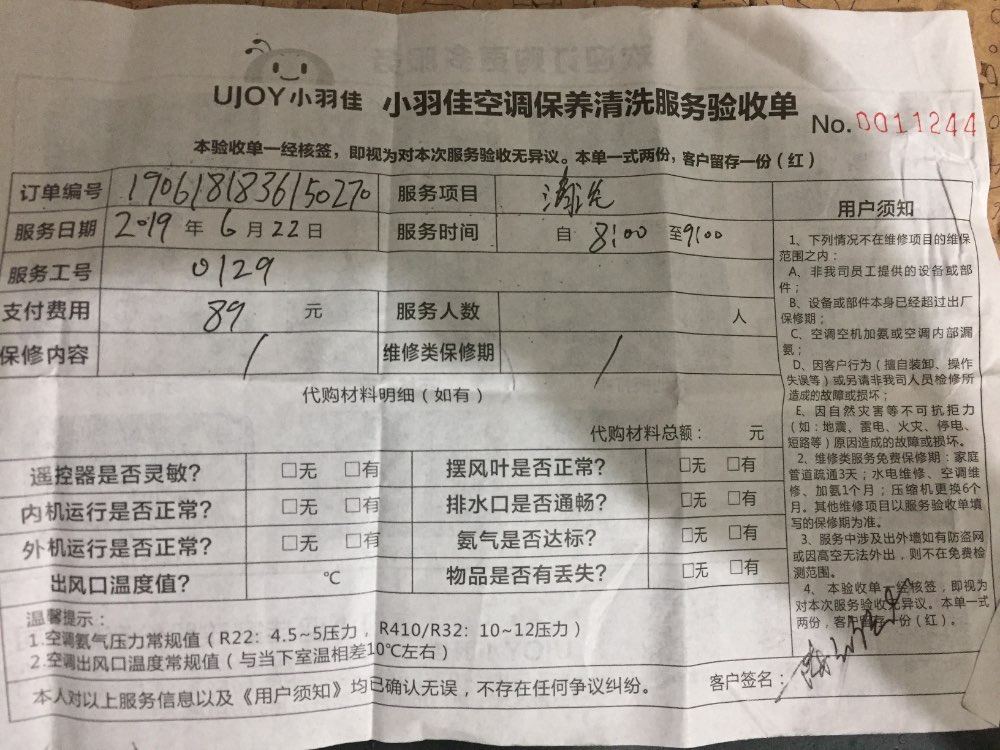 UJOY小羽佳 小羽佳空调保养清洗服务验收单
No.0011244
本验收单一经核签，即视为对本次服务验收无异议。本单一式两份，客户留存一份（红）
订单编号 1906181836150270 服务项目 清洗
服务日期 2019 年 6 月 22 日 服务时间 自 8:00 至9:00
服务工号 0129
支付费用 89 元 服务人数 人
保修内容 / 维修类保修期 /
代购材料明细（如有）
代购材料总额： 元
遥控器是否灵敏? □无 □有 摆风叶是否正常? □无 □有
内机运行是否正常? □无 □有 排水口是否通畅? □无 □有
外机运行是否正常? □无 □有 氨气是否达标? □无 □有
出风口温度值? ℃ 物品是否有丢失? □无 □有
温馨提示：
1.空调氨气压力常规值（R22：4.5~5压力，R410/R32：10~12压力）
2.空调出风口温度常规值（与当下室温相差10℃左右）
本人对以上服务信息以及《用户须知》均已确认无误，不存在任何争议纠纷。
客户签名：
用户须知
1、下列情况不在维修项目的维保
范围之内：
A、非我司员工提供的设备或部
件；
B、设备或部件本身已经超过出厂
保修期；
C、空调空机加氨或空调内部漏
氨；
D、因客户行为（擅自装卸、操作
失误等）或另请非我司人员检修所
造成的故障或损坏；
E、因自然灾害等不可抗拒力
（如：地震、雷电、火灾、停电、
短路等）原因造成的故障或损坏。
2、维修类服务免费保修期：家庭
管道疏通3天；水电维修、空调维
修、加氨1个月；压缩机更换6个
月。其他维修项目以服务验收单填
写的保修期为准。
3、服务中涉及出外墙如有防盗网
或因高空无法外出，则不在免费检
测范围。
4、本验收单一经核签，即视为
对本次服务验收无异议。本单一式
两份，客户留存一份（红）。